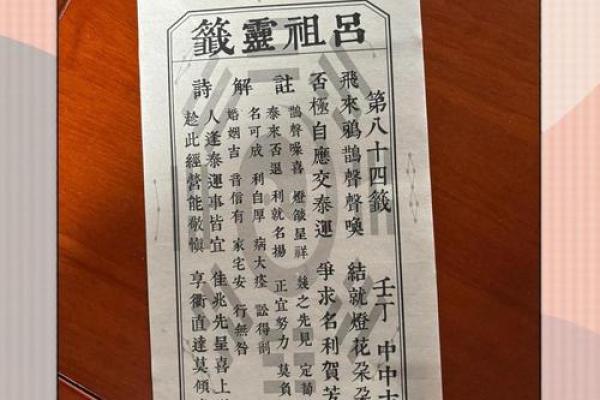 呂祖靈籤
第八十四籤 壬丁 中中
飛來鴉鵲聲聲喚 結就燈花朵朵
否極自應交泰運 爭求名利賀芳
註
鵲聲噪喜 燈燄呈祥 幾之先見 定
泰來否退 利就名揚 正宜努力 莫負
解
名可成 利自厚 病大痊 訟得剖
婚姻吉 音信有 家宅安 行無咎
詩
人逢泰運事皆宜 佳兆先呈喜上
趁此經營能敬慎 享衢直達莫傾